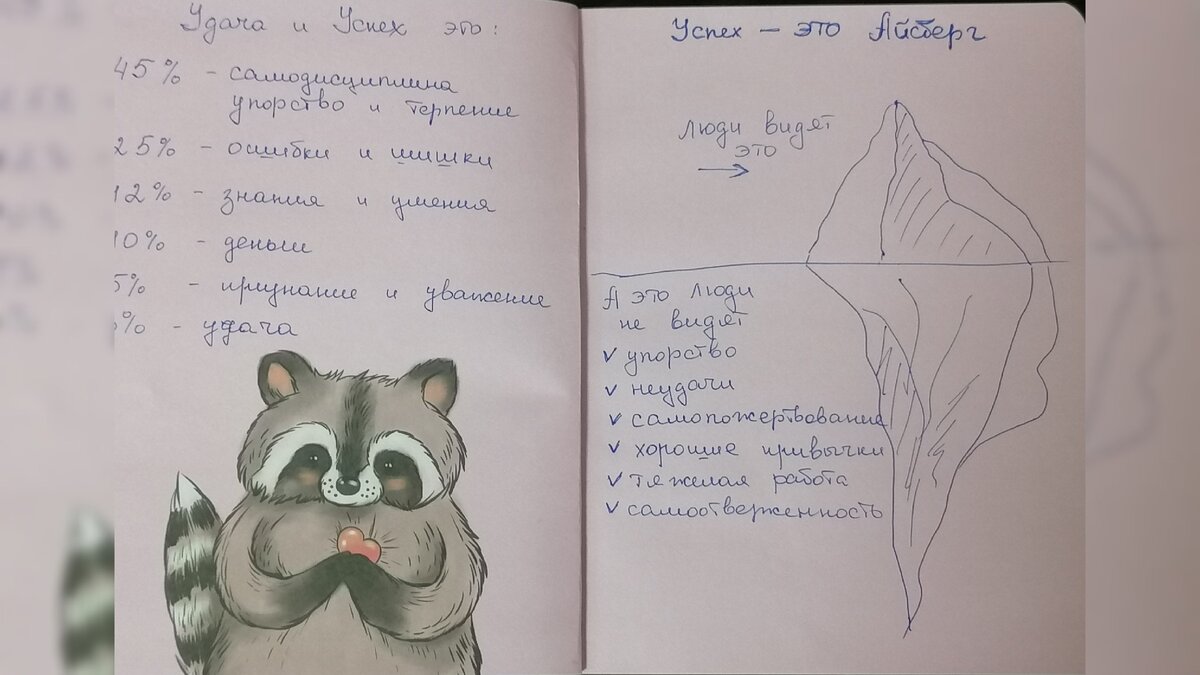 Удача и Успех это:
45% - самодисциплина
упорство и терпение
25% - ошибки и шишки
12% - знания и умения
10% - деньги
5% - признание и уважение
% - удача
Успех — это Айсберг
Люди видят
это
А это люди
не видят
✓ упорство
✓ неудачи
✓ самопожертвование
✓ хорошие привычки
✓ тяжелая работа
✓ самоотверженность